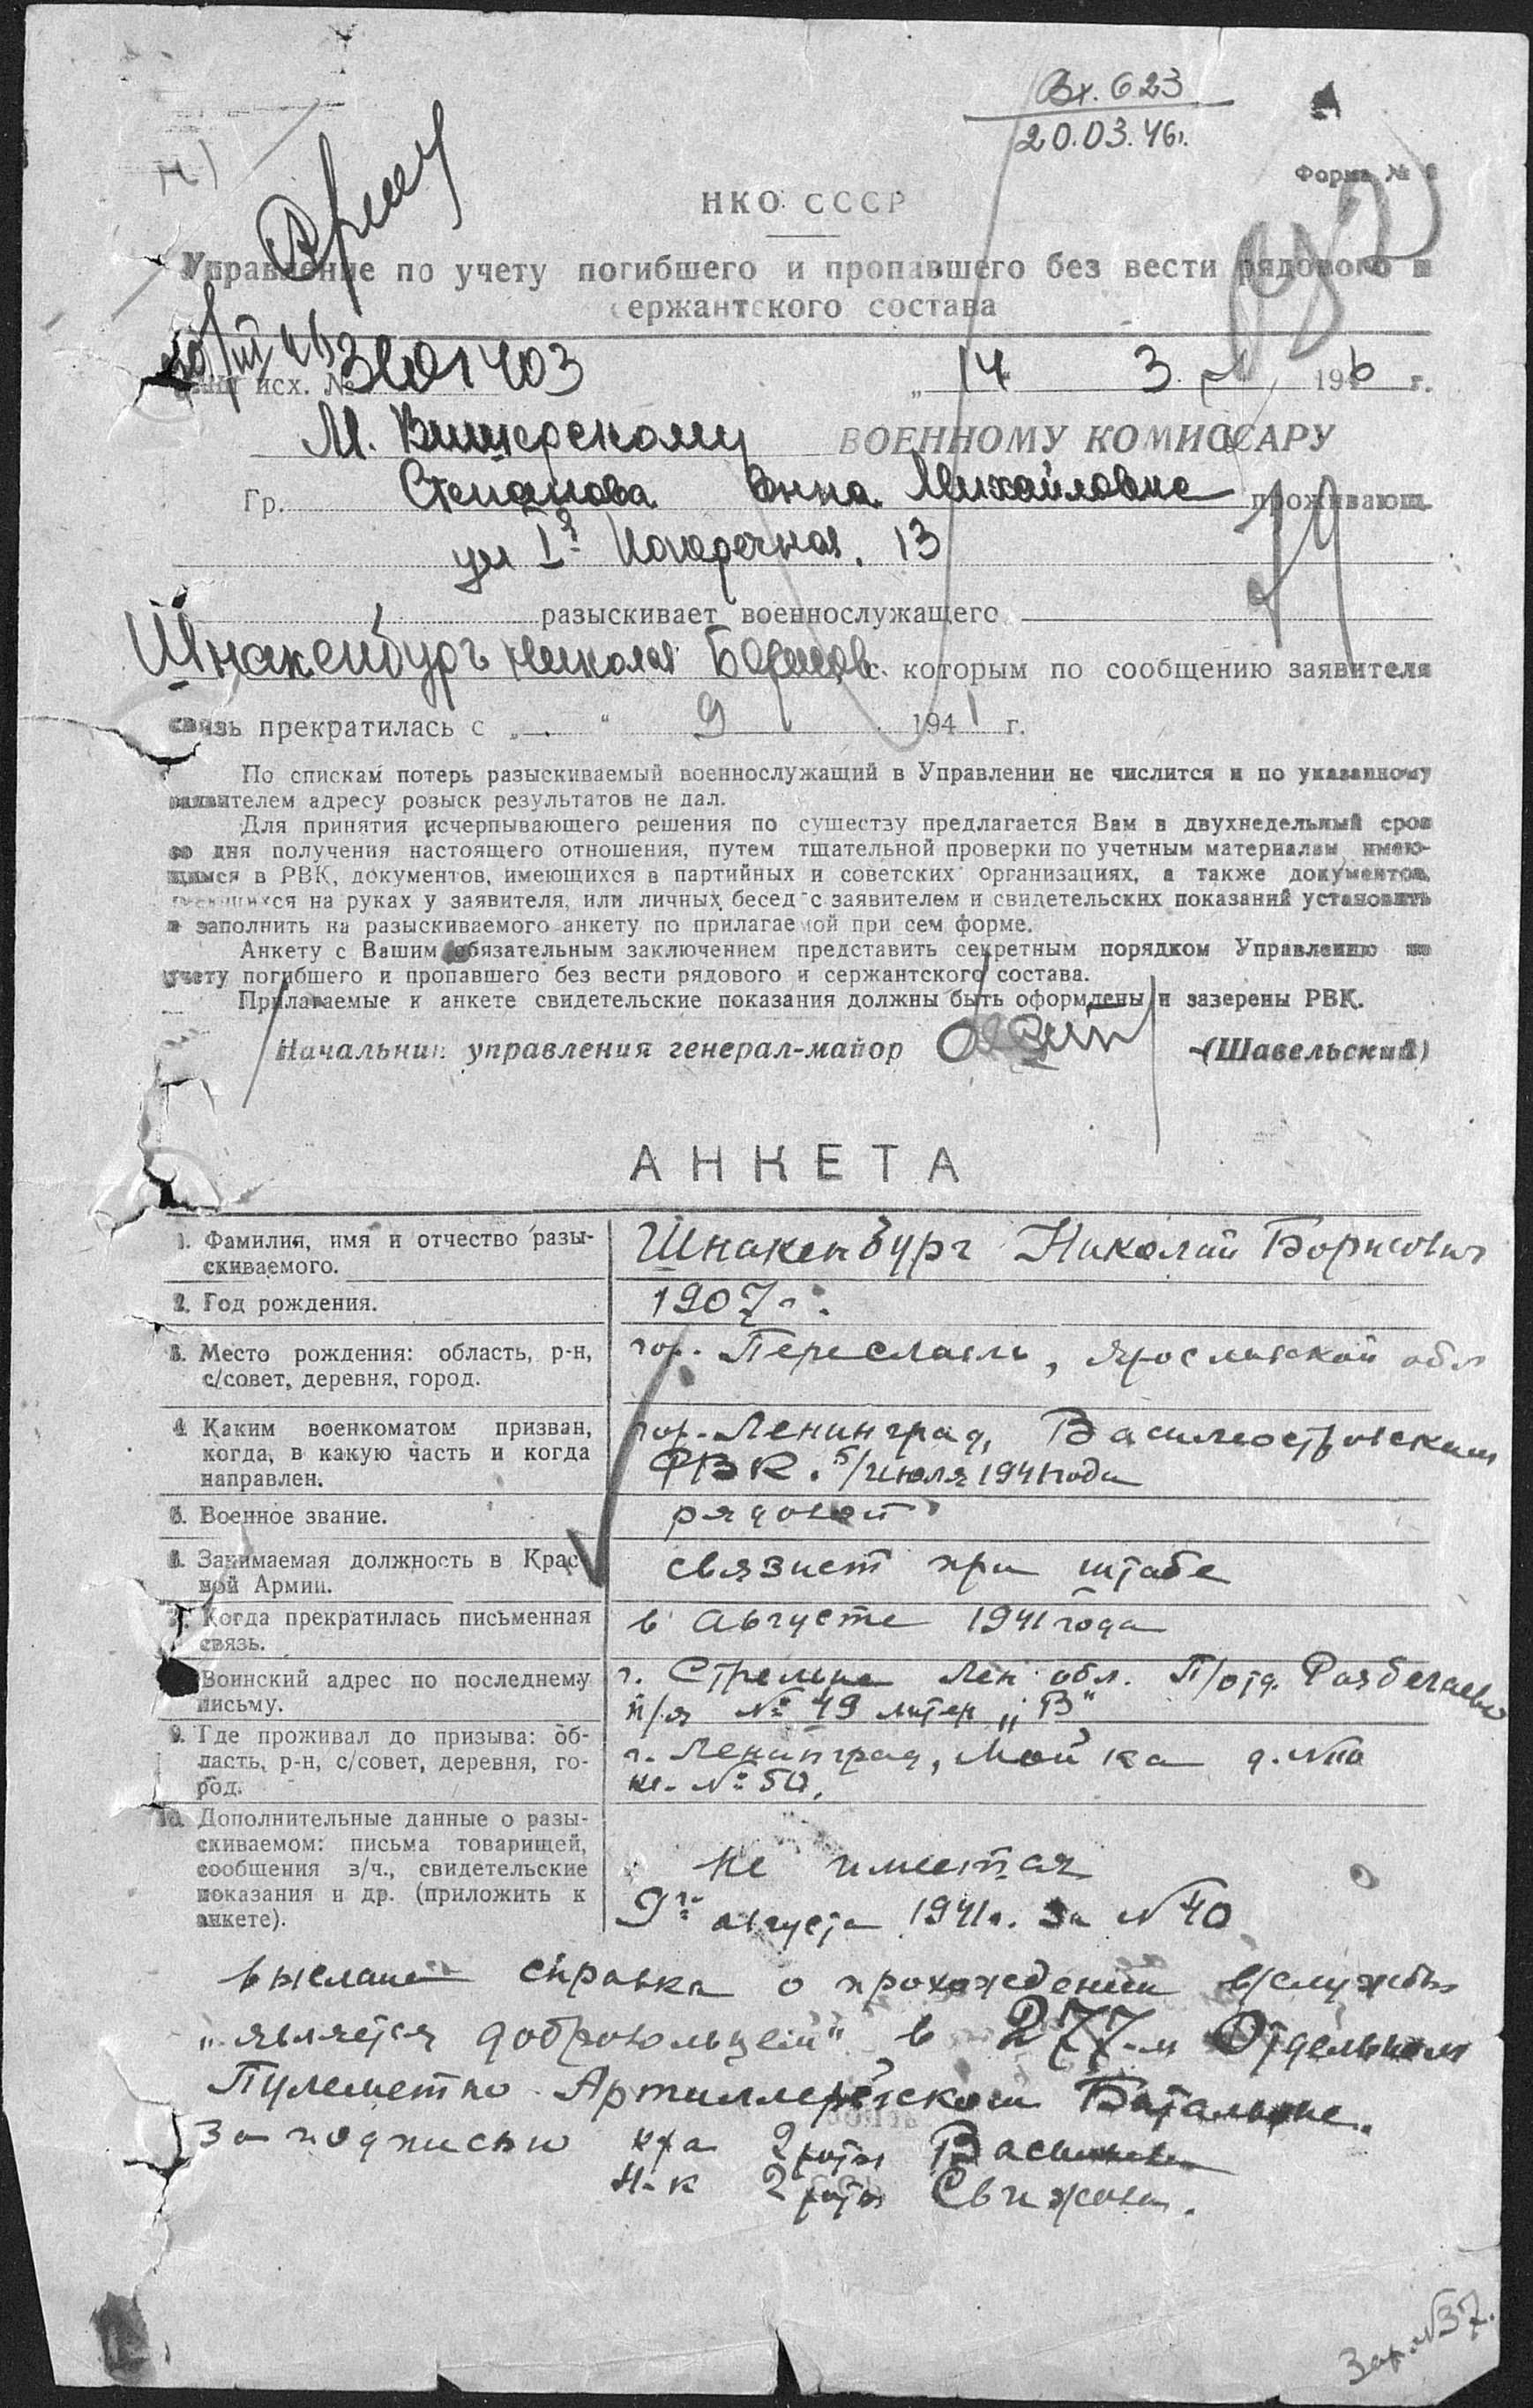 Вх. 623
20.03.46г.
Форма №
НКО СССР
Управление по учету погибшего и пропавшего без вести рядового и
сержантского состава
исх. №
„14" 3 1946 г.
М. Вишерскому ВОЕННОМУ КОМИССАРУ
Гр. Степанова Анна Михайловна проживающ.
ул I-я 13
разыскивает военнослужащего
Шнакенбург Николая Борисов. с которым по сообщению заявителя
связь прекратилась с „ " 9 1941 г.
По спискам потерь разыскиваемый военнослужащий в Управлении не числится и по указанному
заявителем адресу розыск результатов не дал.
Для принятия исчерпывающего решения по существу предлагается Вам в двухнедельный срок
со дня получения настоящего отношения, путем тщательной проверки по учетным материалам, имею-
щимся в РВК, документов, имеющихся в партийных и советских организациях, а также документов,
имеющихся на руках у заявителя, или личных бесед с заявителем и свидетельских показаний установить
и заполнить на разыскиваемого анкету по прилагаемой при сем форме.
Анкету с Вашим обязательным заключением представить секретным порядком Управлению по
учету погибшего и пропавшего без вести рядового и сержантского состава.
Прилагаемые к анкете свидетельские показания должны быть оформлены и заверены РВК.
Начальник управления генерал-майор (Шавельский)
АНКЕТА
1. Фамилия, имя и отчество разы-
скиваемого.
Шнакенбург Николай Борисович
2. Год рождения.
1907 г.
3. Место рождения: область, р-н,
с/совет, деревня, город.
гор. Переславль, Ярославской обл
4. Каким военкоматом призван,
когда, в какую часть и когда
направлен.
гор. Ленинград, Василеостровским
РВК. 5/июля 1941 года
5. Военное звание.
рядовой
6. Занимаемая должность в Крас-
ной Армии.
связист при штабе
7. Когда прекратилась письменная
связь.
в августе 1941 года
8. Воинский адрес по последнему
письму.
г. Стрельна Лен. обл. П/отд. Разбегаево
п/я № 49 литер „В"
9. Где проживал до призыва: об-
ласть, р-н, с/совет, деревня, го-
род.
г. Ленинград, Мойка д. №
кв. № 50.
10. Дополнительные данные о разы-
скиваемом: письма товарищей,
сообщения з/ч., свидетельские
показания и др. (приложить к
анкете).
не имеется
9го августа 1941г. за № 40
выслана справка о прохождении в/службы
„является добровольцем" в 277-м Отдельном
Пулеметно-Артиллерийском Батальоне.
За подписью к-ра 2 роты
Н-к 2 роты
Зар. №37.